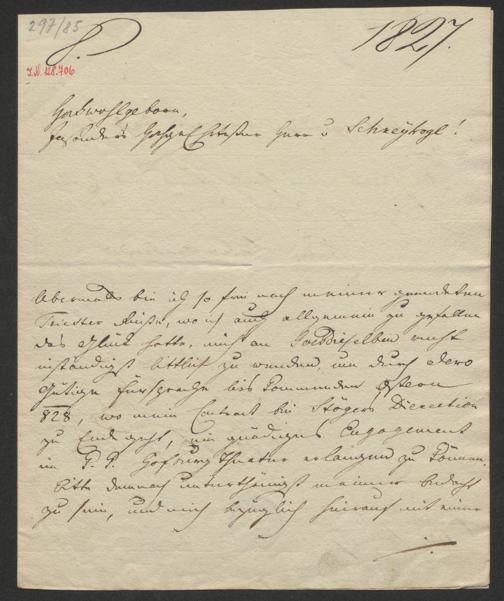 297/85
1827.
I.N. 128.706
Hochwohlgeborn,
besonders Hochgeschätzter Herr v Schreyvogl!
Abermals bin ich so frey nach meiner geendeten
Triester Reise, wo ich auch allgemein zu gefallen
das Glück hatte, mich an Hochdieselben recht
inständigst bittlich zu wenden, um durch dero
Gütige Fürsprache bis kommenden Ostern
828, wo mein Contract bei Stögers Direction
zu Ende geht, ein gnädiges Engagement
im K. K. Hofburg Theater erlangen zu können.
Bitte demnach unterthänigst meiner bedacht
zu sein, und mich bezüglich hierauf mit einer